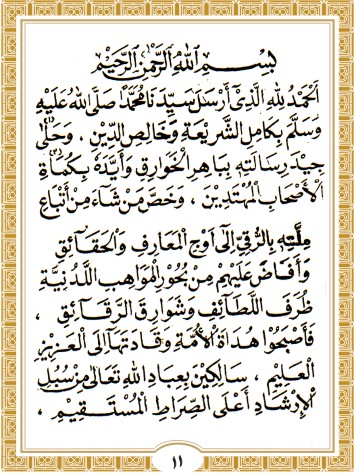 بِسْمِ اللهِ الرَّحْمٰنِ الرَّحِيْمِ
اَلْحَمْدُ لِلهِ الَّذِىْ أَرْسَلَ سَيِّدَنَا مُحَمَّدًا صَلَّى اللهُ عَلَيْهِ
وَسَلَّمَ بِكَامِلِ الشَّرِيْعَةِ وَخَالِصِ الدِّيْنِ ، وَحَلَّى
جِيْدَ رِسَالَتِهِ بِبَاهِرِ الْخَوَارِقِ وَأَيَّدَهُ بِكُمَاةِ
الْأَصْحَابِ الْمُهْتَدِيْنَ ، وَخَصَّ مَنْ شَاءَ مِنْ أَتْبَاعِ
مِلَّتِهِ بِالرُّقِيِّ إِلَى أَوْجِ الْمَعَارِفِ وَالْحَقَائِقِ
وَأَفَاضَ عَلَيْهِمْ مِنْ بُحُوْرِ الْمَوَاهِبِ اللَّدُنِّيَّةِ
ظُرَفَ اللَّطَائِفِ وَشَوَارِقَ الرَّقَائِقِ ،
فَأَصْبَحُوْا هُدَاةَ الْأُمَّةِ وَقَادَتَهَا إِلَى الْعَزِيْزِ
الْعَلِيْمِ ، سَالِكِيْنَ بِعِبَادِ اللهِ تَعَالَى مِنْ سُبُلِ
الْإِرْشَادِ أَعْلَى الصِّرَاطِ الْمُسْتَقِيْمِ ،
١١